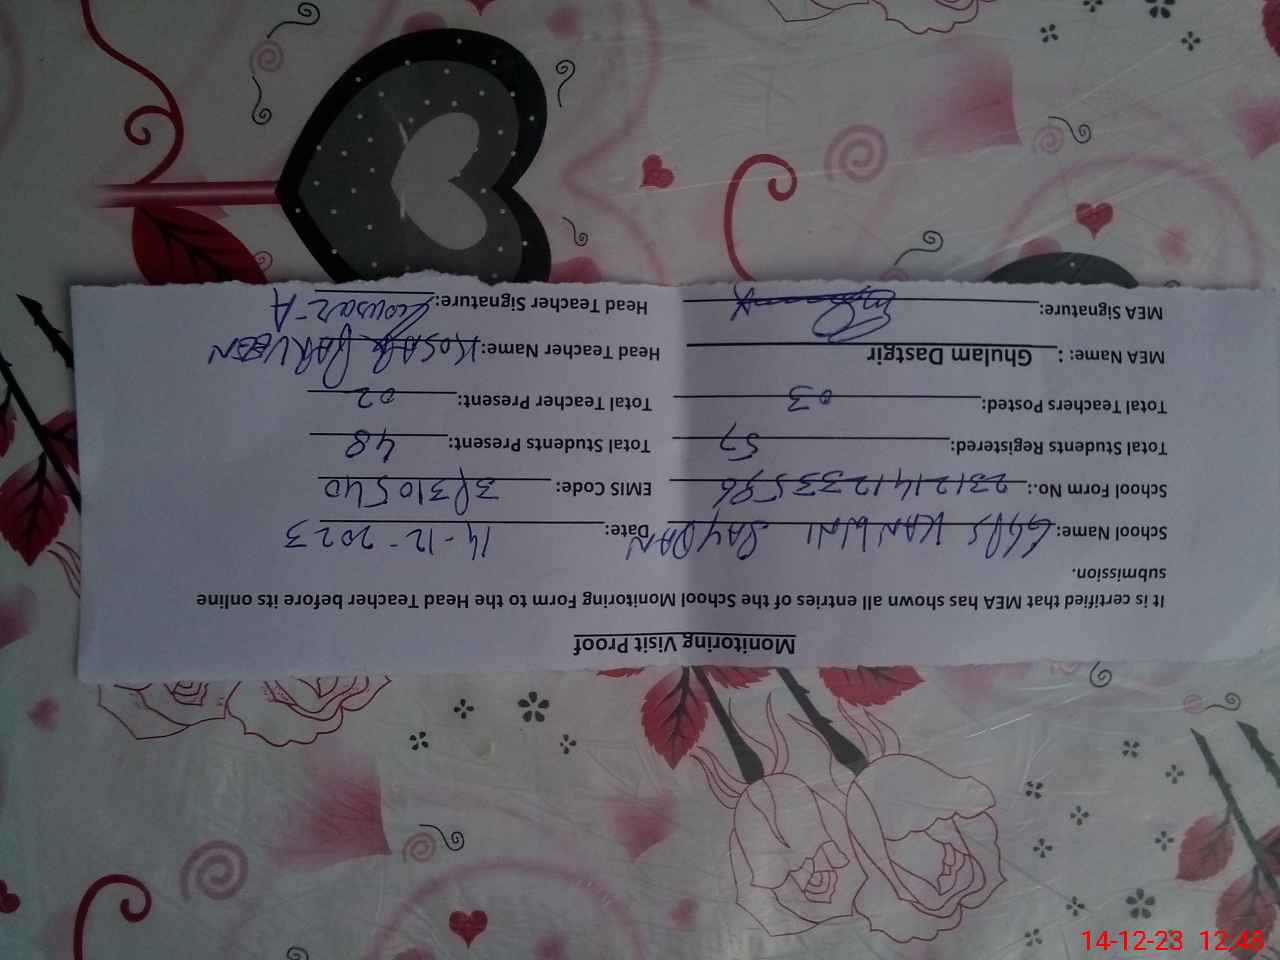 Monitoring Visit Proof
It is certified that MEA has shown all entries of the School Monitoring Form to the Head Teacher before its online
submission.
School Name: GGPS KANWNI SAYDAN Date: 14-12-2023
School Form No.: 231214123355 96 EMIS Code: 38310540
Total Students Registered: 57 Total Students Present: 48
Total Teachers Posted: 03 Total Teacher Present: 02
MEA Name: : Ghulam Dastgir Head Teacher Name: KOSAR PARVEEN
MEA Signature: Head Teacher Signature: Kowsar A
14-12-23 12:48